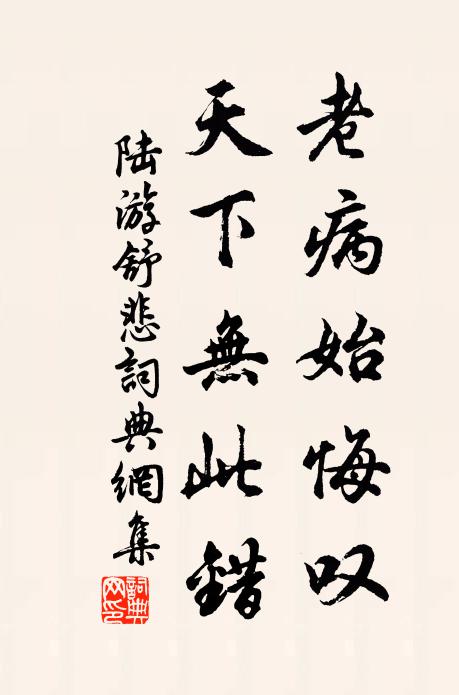 老病始悔叹
天下無此錯
陆游舒悲詞典網集
詞典网印